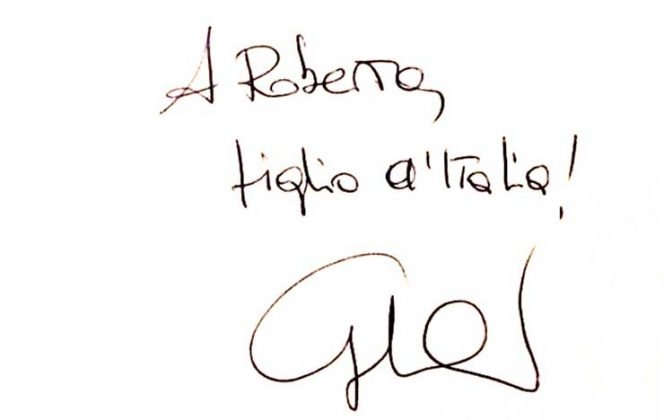 A Roberta,
figlia d'Italia!